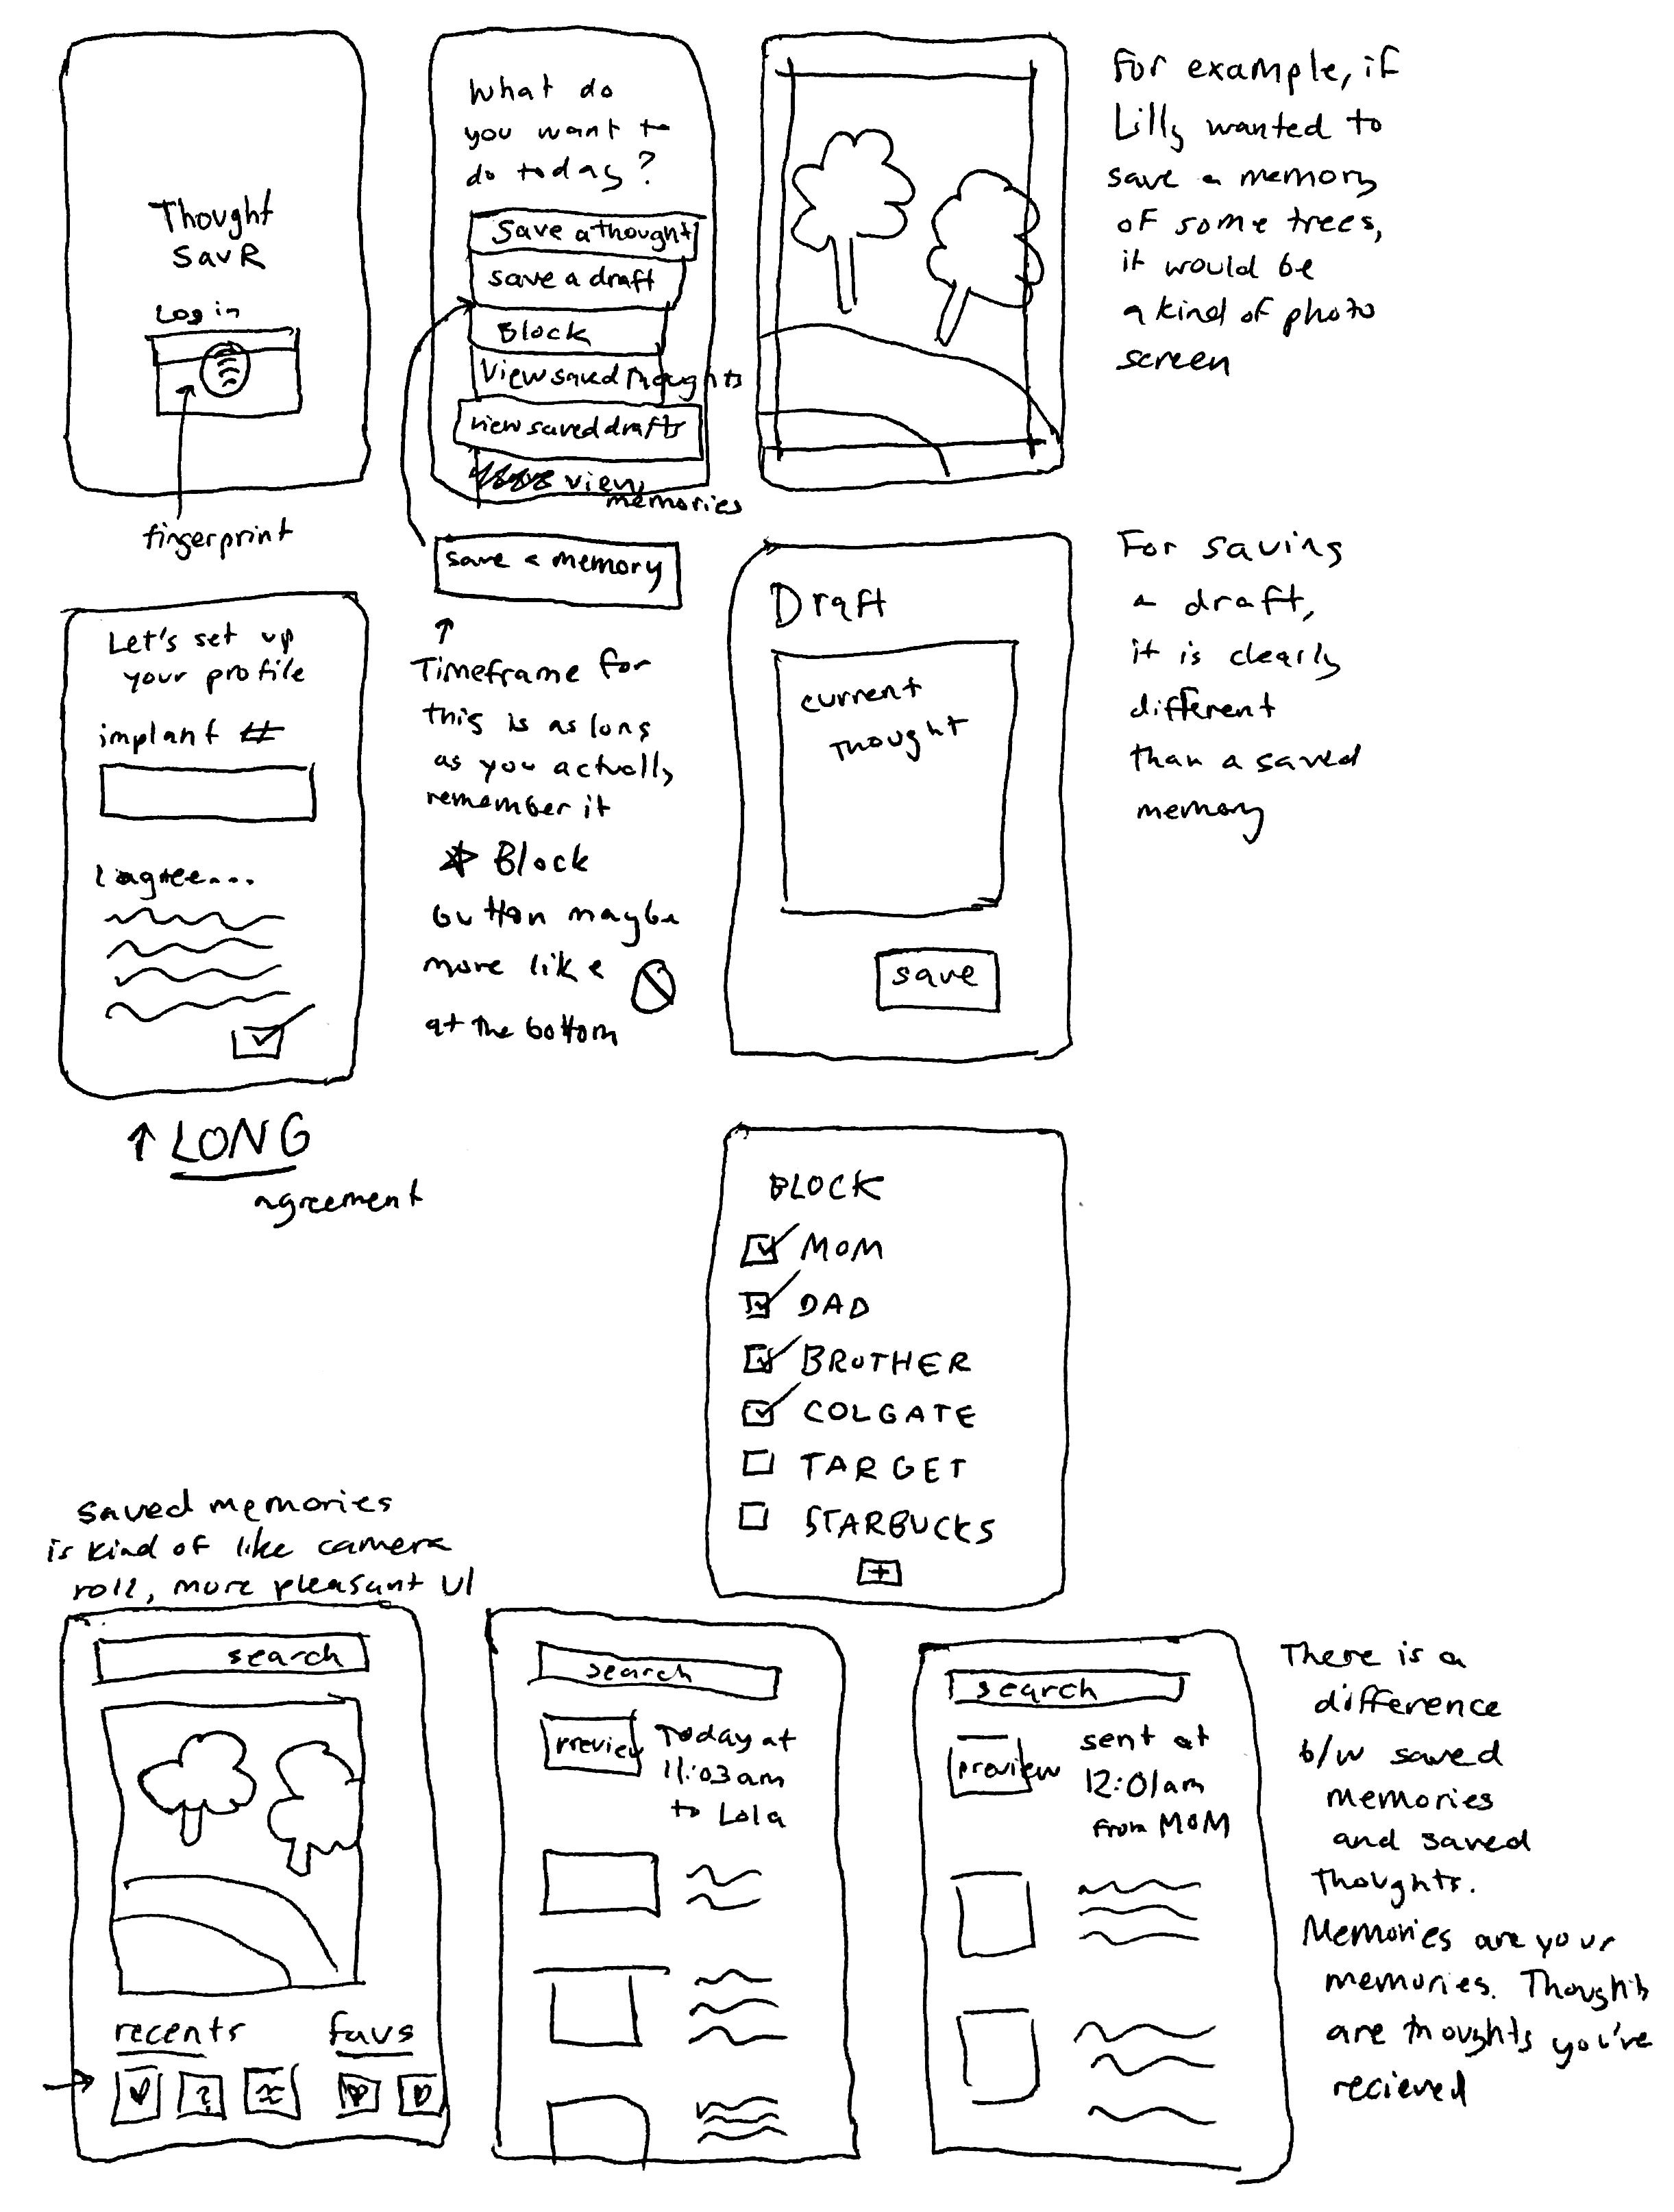 Thought
SavR
Log in
fingerprint
What do
you want to
do today?
Save a thought
save a draft
Block
View saved thoughts
view saved drafts
view
memories
save a memory
↑
Timeframe for
this is as long
as you actually
remember it
* Block
button maybe
more like
at the bottom
For example, if
Lilly wanted to
save a memory
of some trees,
it would be
a kind of photo
screen
Let's set up
your profile
implant #
I agree...
↑ LONG
agreement
Draft
current
thought
save
For saving
a draft,
it is clearly
different
than a saved
memory
BLOCK
MOM
DAD
BROTHER
COLGATE
TARGET
STARBUCKS
+
saved memories
is kind of like camera
roll, more pleasant UI
search
recents favs
?
search
preview
Today at
11:03am
to Lola
search
preview
sent at
12:01am
from MOM
There is a
difference
b/w saved
memories
and saved
thoughts.
Memories are your
memories. Thoughts
are thoughts you've
recieved